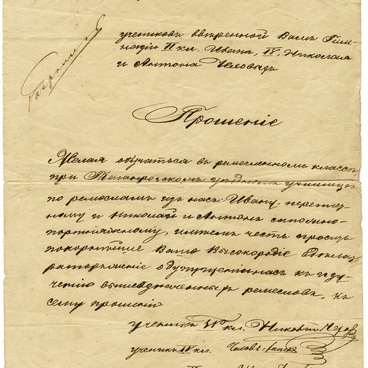 учениковъ вверенной Вамъ Гим-
назiи II кл. Ивана, IV, Николая
и Антона Чеховыхъ
Прошенiе
Желая обучаться въ ремесленномъ классѣ
при Таганрогскомъ уѣздномъ училищѣ
по ремесламъ изъ насъ Ивану переплет
ному и Николай и Антонъ сапожно-
портняжному, имѣемъ честь просить
покорнѣйше Ваше Высокородiе
распоряженiе о допущенiи насъ къ изу
ченiю вышеозначенныхъ ремеслъ, къ
сему прошенiю
ученикъ IV кл. Николай Чехов
ученикъ IV кл. Чеховъ Антонъ